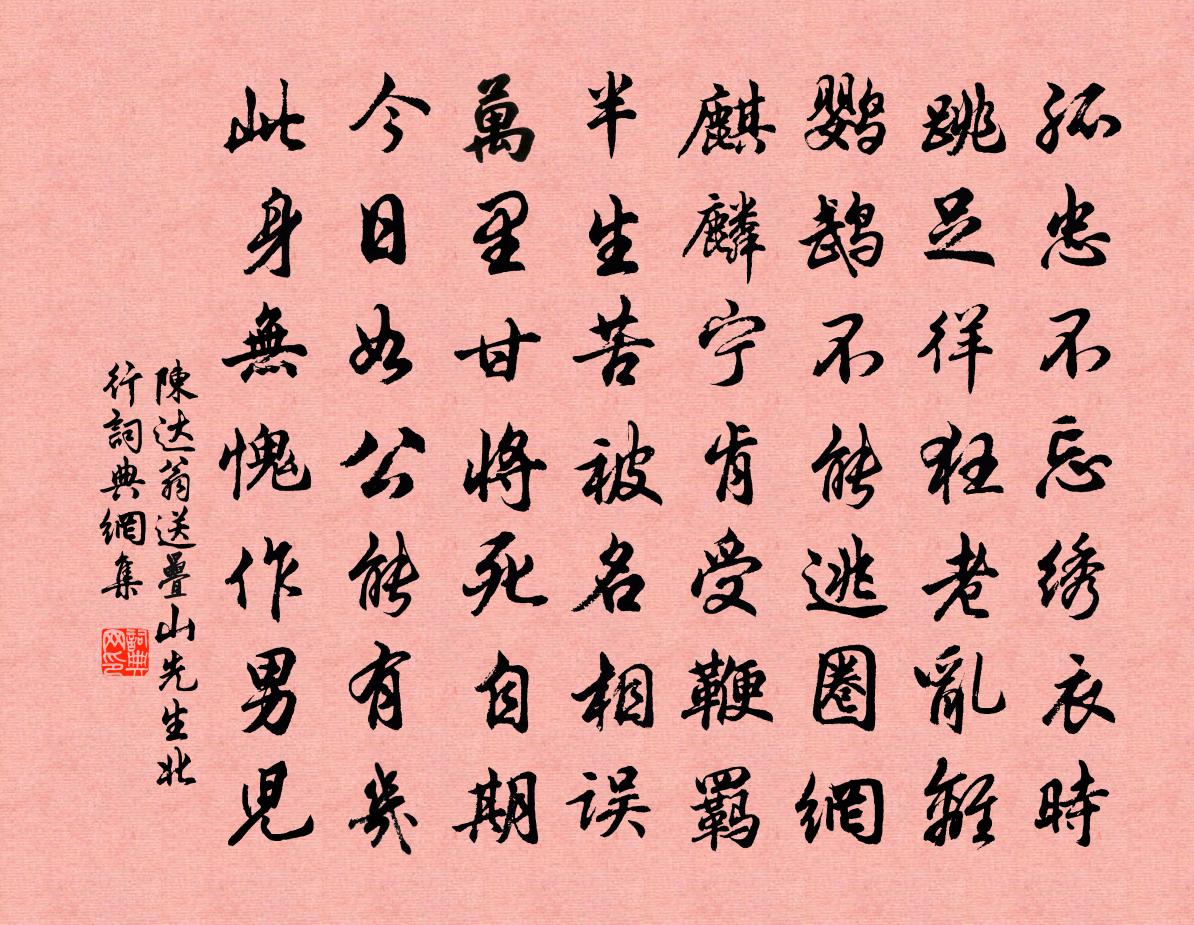 孤忠不忘绣衣時
跳足徉狂老亂離
鹦鵡不能逃圈網
麒麟宁肯受鞭羁
半生苦被名相误
萬里甘將死自期
今日如公能有幾
此身無愧作男児
陳达翁送疊山先生北
行詞典網集
詞典网印